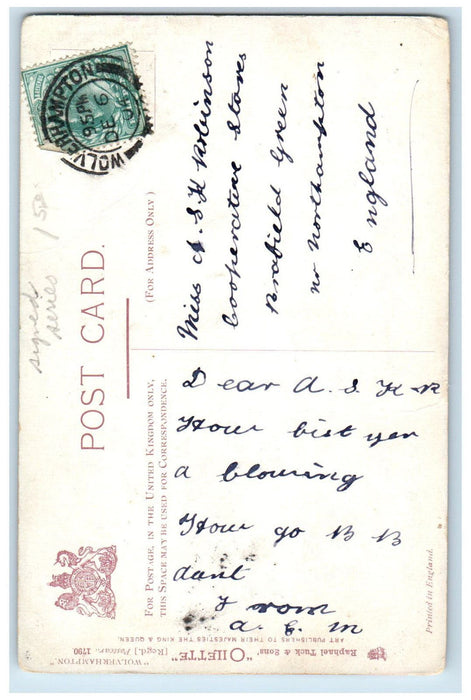 WOLVERHAMPTON
9 15 PM
DE 6
04
POST CARD.
(FOR ADDRESS ONLY)
FOR POSTAGE, IN THE UNITED KINGDOM ONLY,
THIS SPACE MAY BE USED FOR CORRESPONDENCE.
signed
series
Miss A. S. K Robinson
Cooperative Stores
Brafield Green
nr Northampton
England
Dear A. S. K R
How bist yer
a blowing
How go B B
dant
From
A. E. M
Printed in England.
Raphael Tuck & Sons' "OILETTE" [Regd.] Postcard 1790
"WOLVERHAMPTON."
ART PUBLISHERS TO THEIR MAJESTIES THE KING & QUEEN.